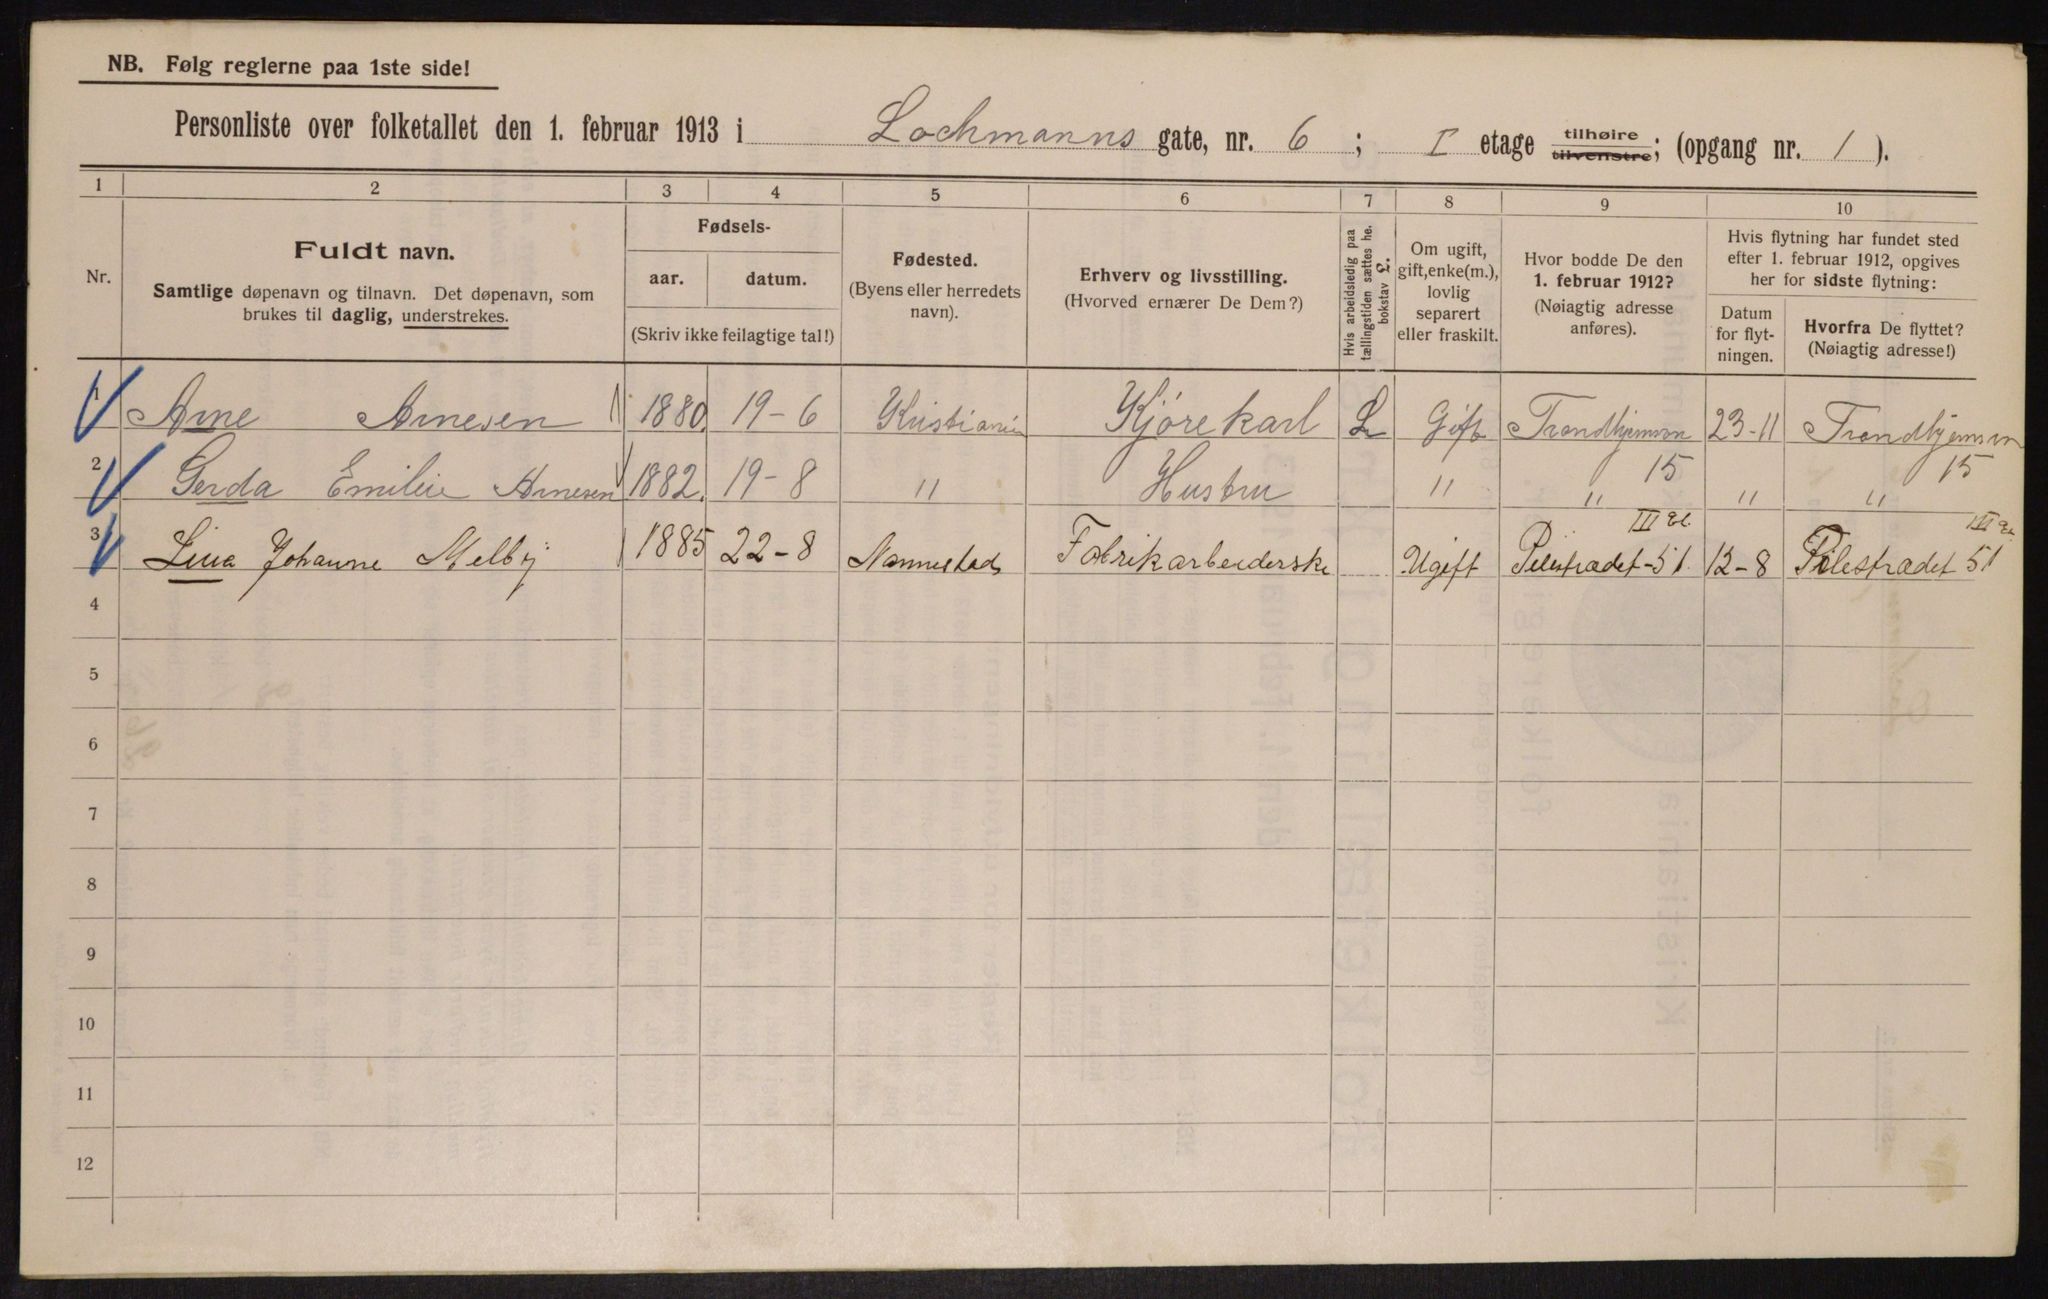 NB. Følg reglerne paa 1ste side!
Personliste over folketallet den 1. februar 1913 i Lochmanns gate, nr. 6; I etage tilhøire tilvenstre; (opgang nr. 1).
1 2 3 4 5 6 7 8 9 10
Nr.
Fuldt navn.
Samtlige døpenavn og tilnavn. Det døpenavn, som
brukes til daglig, understrekes.
Fødsels-
aar. datum.
(Skriv ikke feilagtige tal!)
Fødested.
(Byens eller herredets
navn).
Erhverv og livsstilling.
(Hvorved ernærer De Dem?)
Hvis arbeidsledig paa
tællingstiden sættes her
bokstav £.
Om ugift,
gift, enke(m.),
lovlig
separert
eller fraskilt.
Hvor bodde De den
1. februar 1912?
(Nøiagtig adresse
anføres).
Hvis flytning har fundet sted
efter 1. februar 1912, opgives
her for sidste flytning:
Datum
for flyt-
ningen.
Hvorfra De flyttet?
(Nøiagtig adresse!)
1 Arne Arnesen 1880. 19-6 Kristiania Kjørekarl L Gift Trondhjemsvn 23-11 Trondhjemsvn
2 Gerda Emilie Arnesen 1882. 19-8 " Hustru " " 15 " " 15
III et. III et.
3 Lina Johanne Melby 1885 22-8 Nannestad Fabrikarbeiderske Ugift Pilestrædet-51. 12-8 Pilestrædet 51
4
5
6
7
8
9
10
11
12